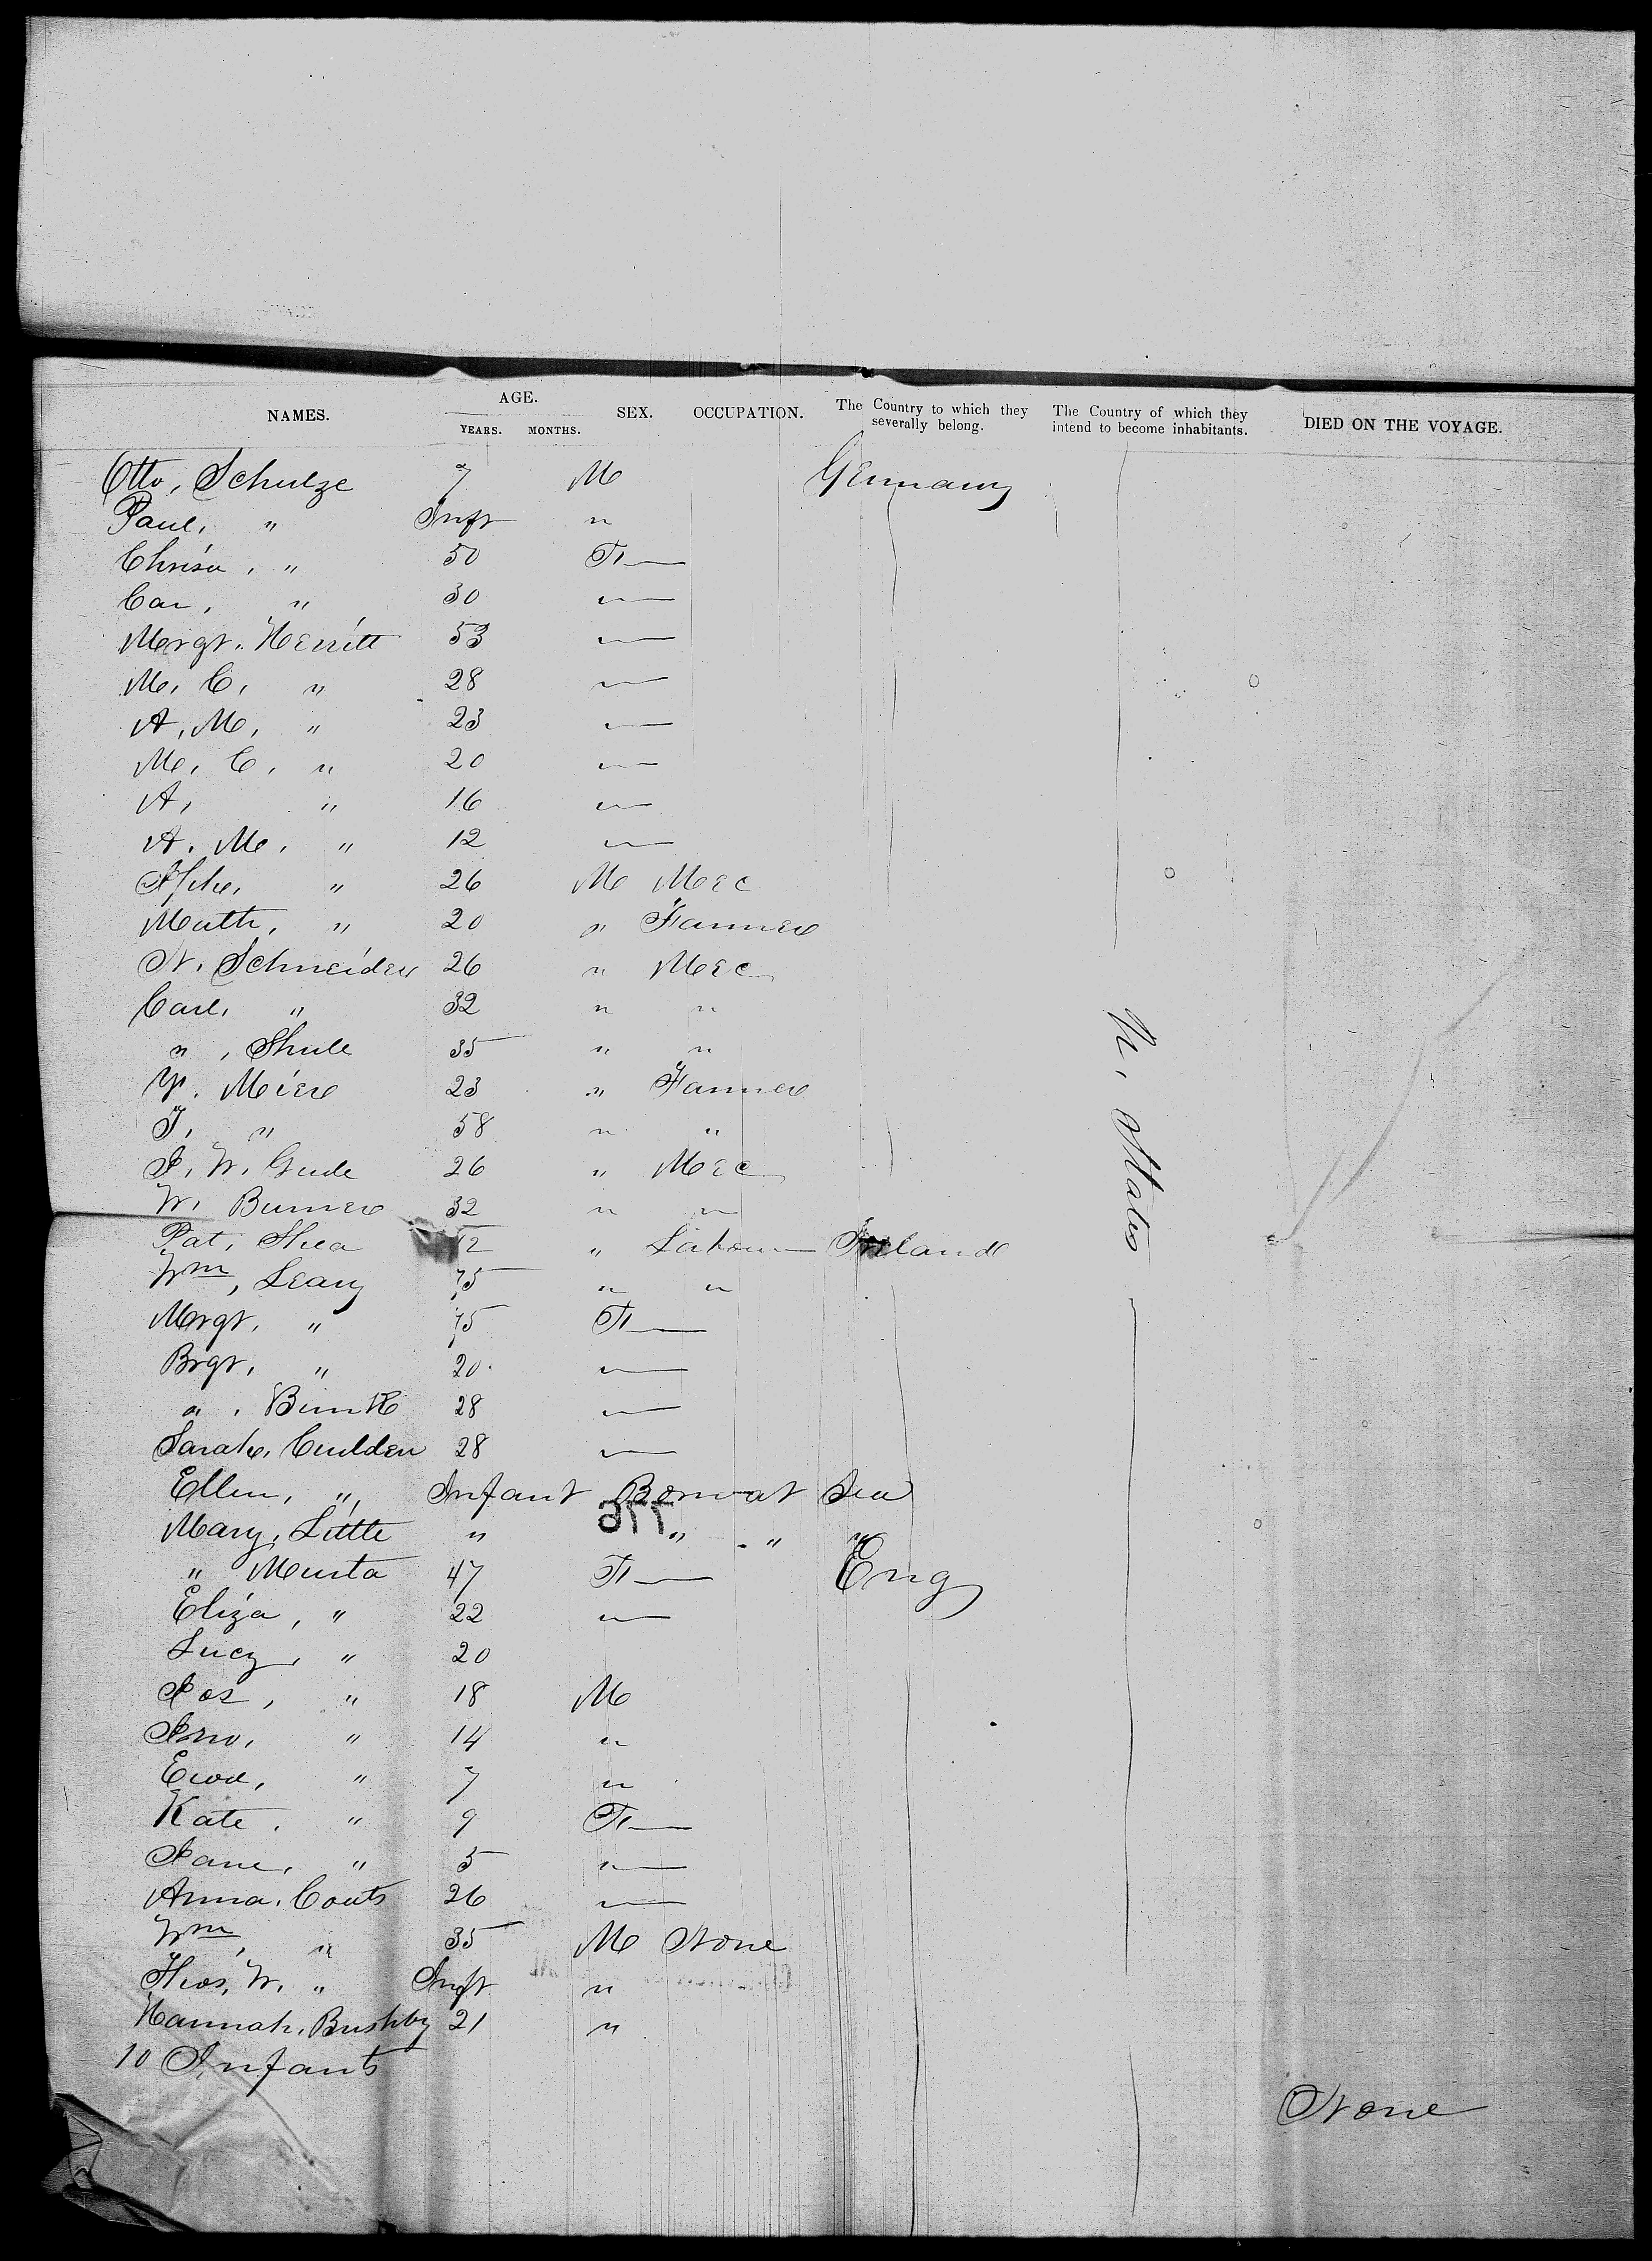 NAMES. AGE. YEARS. MONTHS. SEX. OCCUPATION. The Country to which they severally belong. The Country of which they intend to become inhabitants. DIED ON THE VOYAGE.
Otto, Schulze 7 M Germany
Paul, " Inft "
" 50 F
Car, " 30 "
Mrgt. 53 "
M. C. " 28 "
A. M. " 23 "
M. C. " 20 "
A. " 16 "
A. M. " 12 "
" 26 M Mec
Math, " 20 " Farmer
N. Schneider 26 " Mec
Carl, " 32 " "
" , 35 " "
Meier 23 " Farmer
" 58 " "
W. Gude 26 " Mec
W. 32 " "
Pat, Shea " Labour Ireland
Wm, Leary 75 " "
Mrgt, " 75 F
Brgt, " 20 "
" , 28 "
Sarah, 28 "
Ellen, " Infant Born at Sea
Mary, Little " " " "
" 47 F Eng
Eliza, " 22 "
Lucy, " 20
Jos, " 18 M
Jno, " 14 "
Ewd, " 7 "
Kate, " 9 F
Jane, " 5 "
Anna, Couts 26 "
Wm, " 35 M None
Thos, W. " Inft "
Hannah, Bushby 21 "
10 Infants
None
U. States